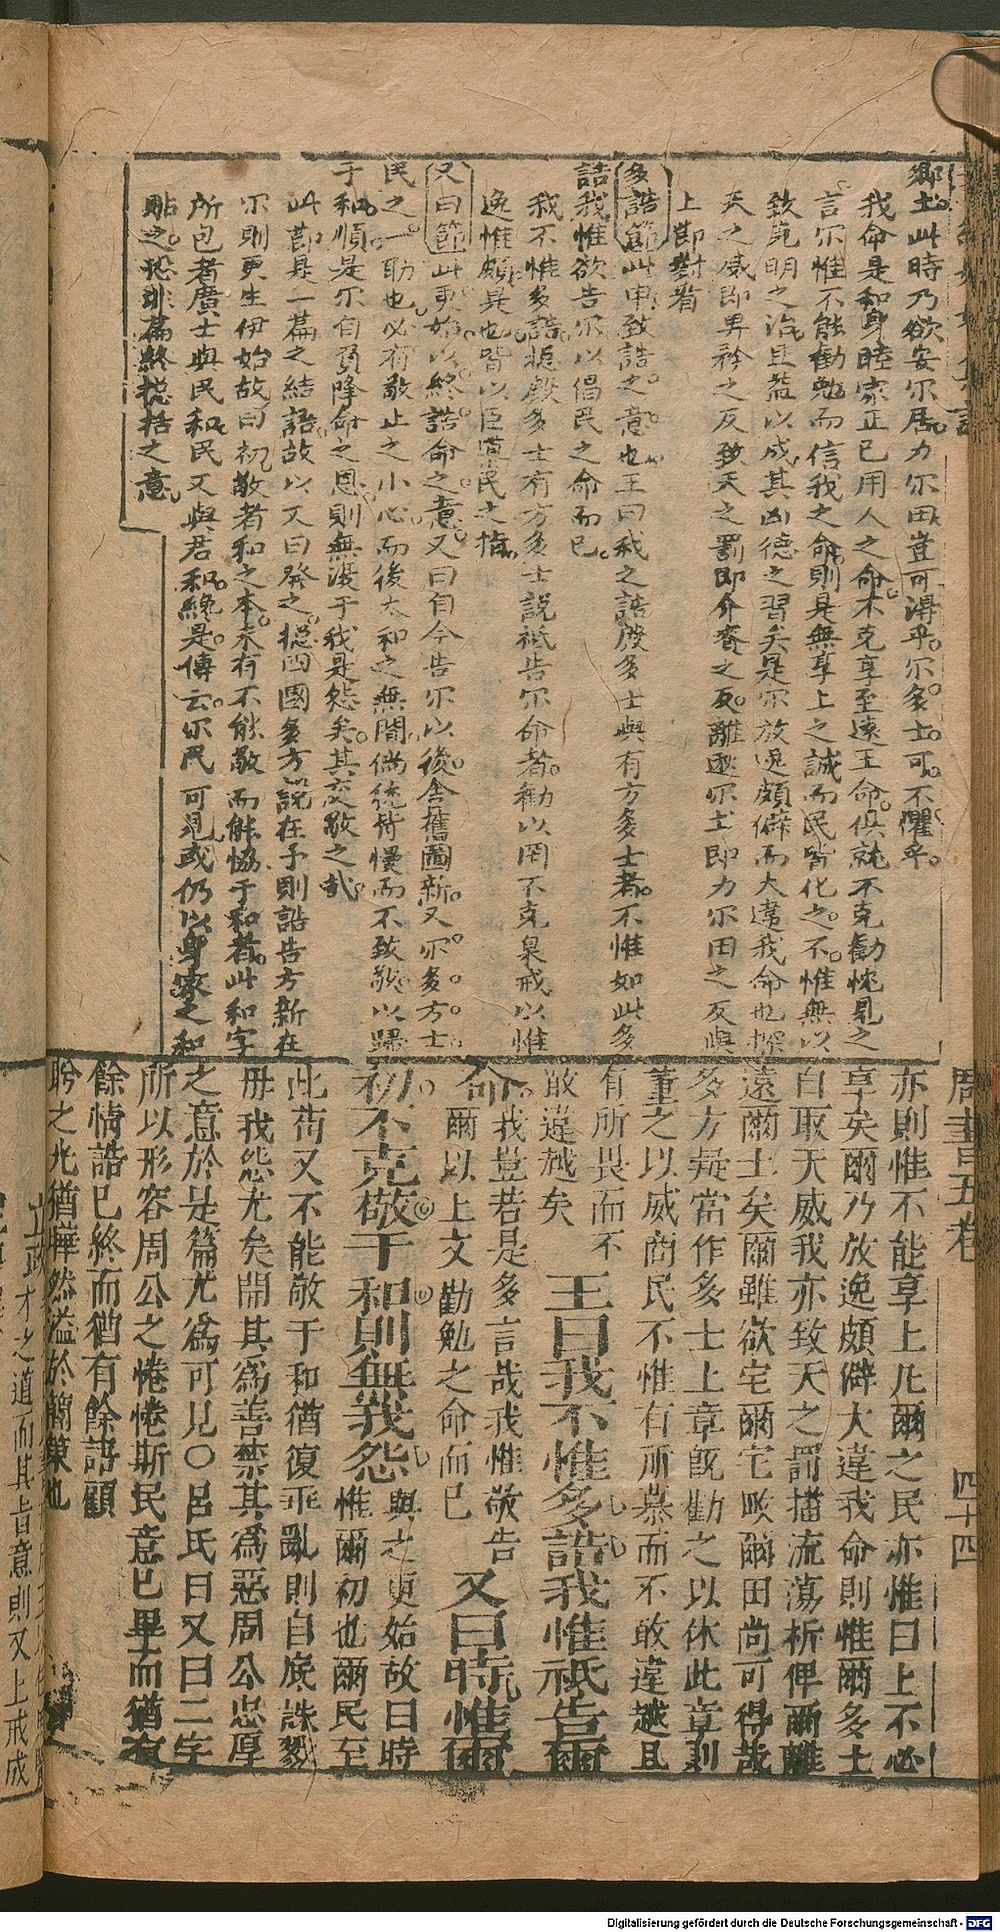 鄉土此時乃欲安尔居力尔田豈可淂乎尔多士可不懼乎
我命是和身睦家正已用人之命不克享至遠王命俱就不克勸忱見之
言尔惟不能勸勉而信我之命則是無享上之誠而民皆化之不惟無以
致克明之治且益以成其凶德之習矣是尔放逸頗僻而大違我命也探
天之威即畀矜之反致天之罰即介賚之反離逖尔土即力尔田之反與
上節對看
多誥節此申致誥之意也王曰我之誥庶多士與有方多士者不惟如此多
誥我惟欲告尔以倡民之命而已
我不惟多誥摠殷多士有方多士說祗告尔命者勸以罔不克臬戒以惟
逸惟頗是也皆以臣道民之指
又曰節此更始以終誥命之意又曰自今告尔以後舍舊圖新又尔多方士
民之一助也必有敬止之小心而後太和之無間倘徒骨慢而不致敬以歸
于和順是尔自負降命之恩則無漫于我是怨矣其交敬之哉
此節是一篇之結語故以又曰發之摠四國多方說在予則誥告方新在
尔則更生伊始故曰初敬者和之本未有不能敬而能恊于和者此和字
所包者廣士與民和民又與君和終是傳云尔民可見或仍以身家之和
貼之恐非篇終摠括之意
周書五卷
四十四
亦則惟不能享上凡爾之民亦惟曰上不必
享矣爾乃放逸頗僻大違我命則惟爾多士
自取天威我亦致天之罰播流蕩析俾爾離
遠爾土矣爾雖欲宅爾宅畋爾田尚可得哉
多方疑當作多士上章旣勸之以休此章則
董之以威商民不惟有所慕而不敢違越且
有所畏而不
敢違越矣 王曰我不惟多誥我惟祗告爾
命 我豈若是多言哉我惟敬告
爾以上文勸勉之命而已 又曰時惟爾
初不克敬于和則無我怨 與之更始故曰時
惟爾初也爾民至
此苟又不能敬于和猶復乖亂則自底誅戮
毋我怨尤矣開其爲善禁其爲惡周公忠厚
之意於是篇尤爲可見○呂氏曰又曰二字
所以形容周公之惓惓斯民意已畢而猶有
餘情誥已終而猶有餘語顧
盻之光猶曄然溢於簡策也
立政
才之道而其旨意則又上戒成
Digitalisierung gefördert durch die Deutsche Forschungsgemeinschaft - DFG